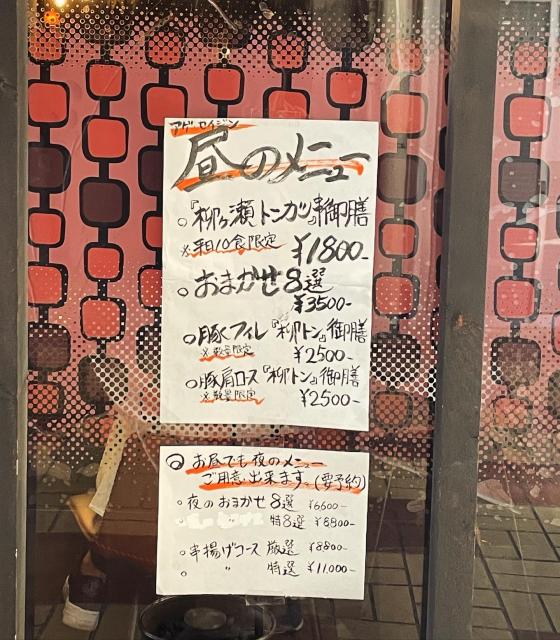 アゲ セイジン
昼のメニュー
○『柳ヶ瀬トンカツ』御膳
※毎日10食限定 ¥1800-
○おまかせ8選
¥3500-
○豚ヘフィレ『柳トン』御膳
※数量限定 ¥2500-
○豚肩ロース『柳トン』御膳
※数量限定 ¥2500-
◎お昼でも夜のメニュー
ご用意出来ます。(要予約)
○夜のおまかせ8選 ¥6600-
特8選 ¥8800-
○串揚げコース 厳選 ¥8800-
○ 〃 特選 ¥11,000-